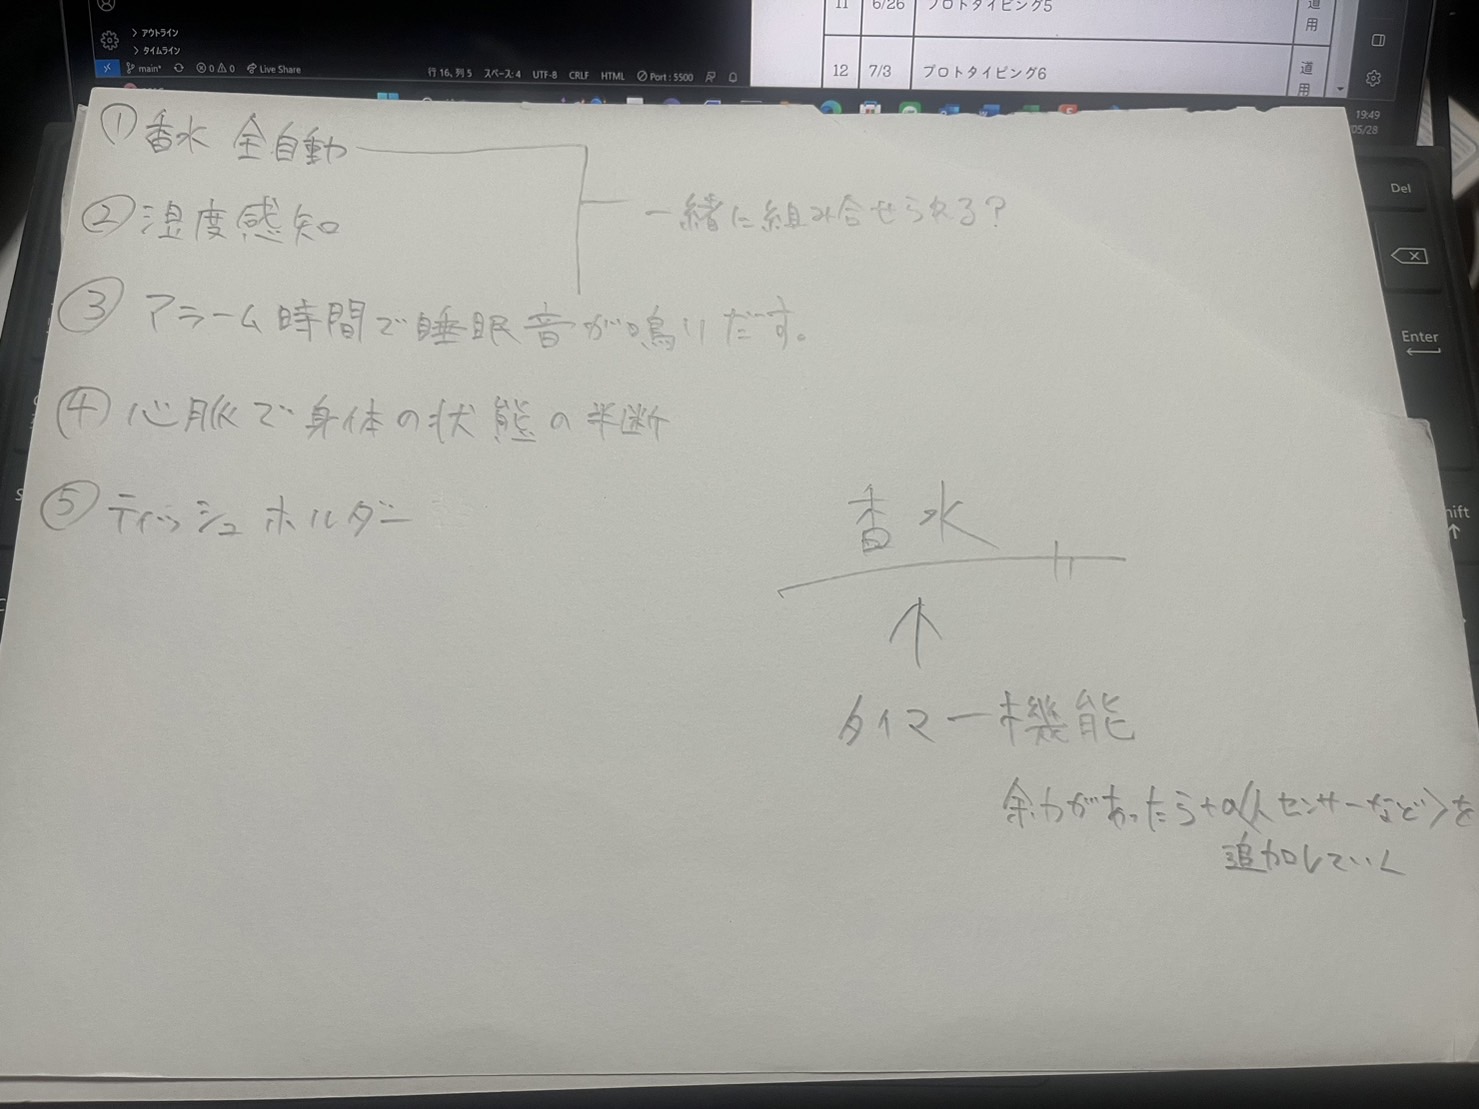 アウトライン
タイムライン
main*
0 0
Live Share
行 16、列 5
スペース: 4
UTF-8
CRLF
HTML
Port : 5500
11 6/26 プロトタイピング5 道用
12 7/3 プロトタイピング6 道用
19:49
05/28
Del
Enter
① 香水 全自動
② 湿度感知
一緒に組み合せられる?
③ アラーム時間で睡眠音が鳴りだす。
④ 心脈で身体の状態の判断
⑤ ティッシュホルダー
香水
↑
タイマー機能
余力があったら+α(人センサーなど)を
追加していく